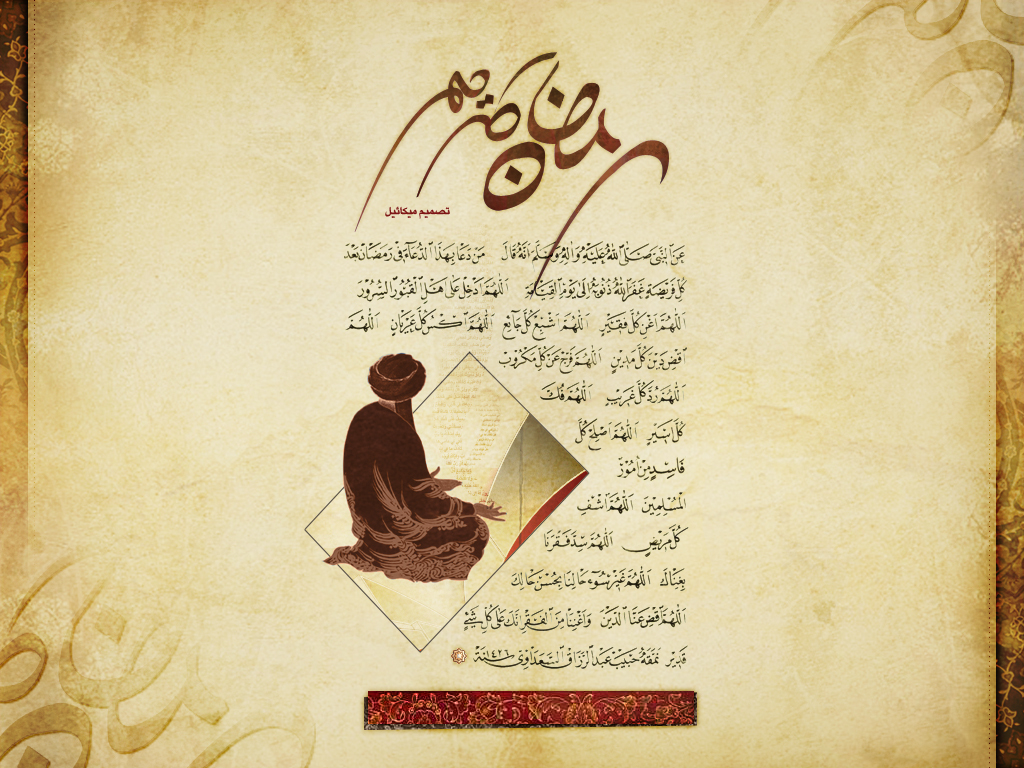 رمضان كريم
تصميم ميكائيل
عَنِ النَّبِيِّ صَلَّى اللهُ عَلَيْهِ وَآلِهِ وَسَلَّمَ اَنَّهُ قَالَ مَنْ دَعَا بِهٰذَا الدُّعَاءِ فِي رَمَضَانَ بَعْدَ
كُلِّ فَرِيضَةٍ غَفَرَ اللهُ ذُنُوبَهُ اِلَى يَوْمِ الْقِيَامَةِ اَللّٰهُمَّ اَدْخِلْ عَلَى اَهْلِ الْقُبُورِ السُّرُورَ
اَللّٰهُمَّ اَغْنِ كُلَّ فَقِيرٍ اَللّٰهُمَّ اَشْبِعْ كُلَّ جَائِعٍ اَللّٰهُمَّ اكْسُ كُلَّ عُرْيَانٍ اَللّٰهُمَّ
اقْضِ دَيْنَ كُلِّ مَدِينٍ اَللّٰهُمَّ فَرِّجْ عَنْ كُلِّ مَكْرُوبٍ
اَللّٰهُمَّ رُدَّ كُلَّ غَرِيبٍ اَللّٰهُمَّ فُكَّ
كُلَّ اَسِيرٍ اَللّٰهُمَّ اَصْلِحْ كُلَّ
فَاسِدٍ مِنْ اُمُورِ
الْمُسْلِمِينَ اَللّٰهُمَّ اشْفِ
كُلَّ مَرِيضٍ اَللّٰهُمَّ سُدَّ فَقْرَنَا
بِغِنَاكَ اَللّٰهُمَّ غَيِّرْ سُوءَ حَالِنَا بِحُسْنِ حَالِكَ
اَللّٰهُمَّ اقْضِ عَنَّا الدَّيْنَ وَاَغْنِنَا مِنَ الْفَقْرِ اِنَّكَ عَلَى كُلِّ شَيْءٍ
قَدِيرٌ نَمَّقَهُ حَبِيبُ عَبْدِ الرَّزَّاقِ السَّعْدَاوِي سَنَةَ ١٤٢٦